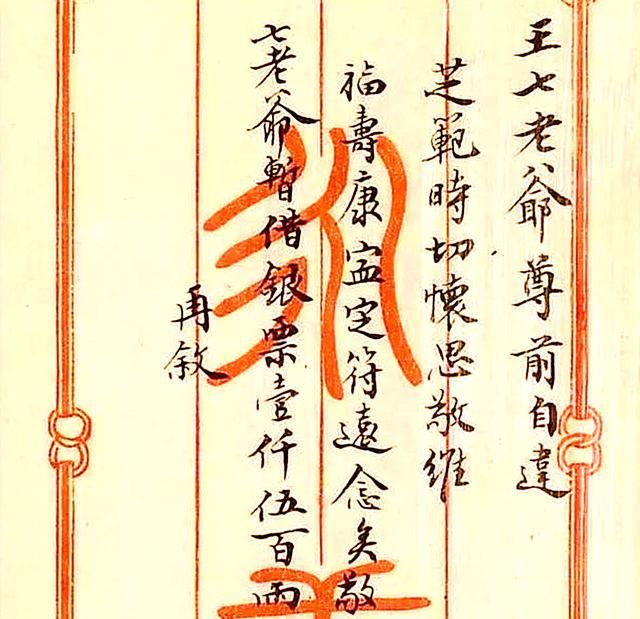 王七老爺尊前自違
芝範時切懷思敬維
福壽康寍定符遠念矣敬
七老爺暫借銀票壹仟伍百兩
再敘